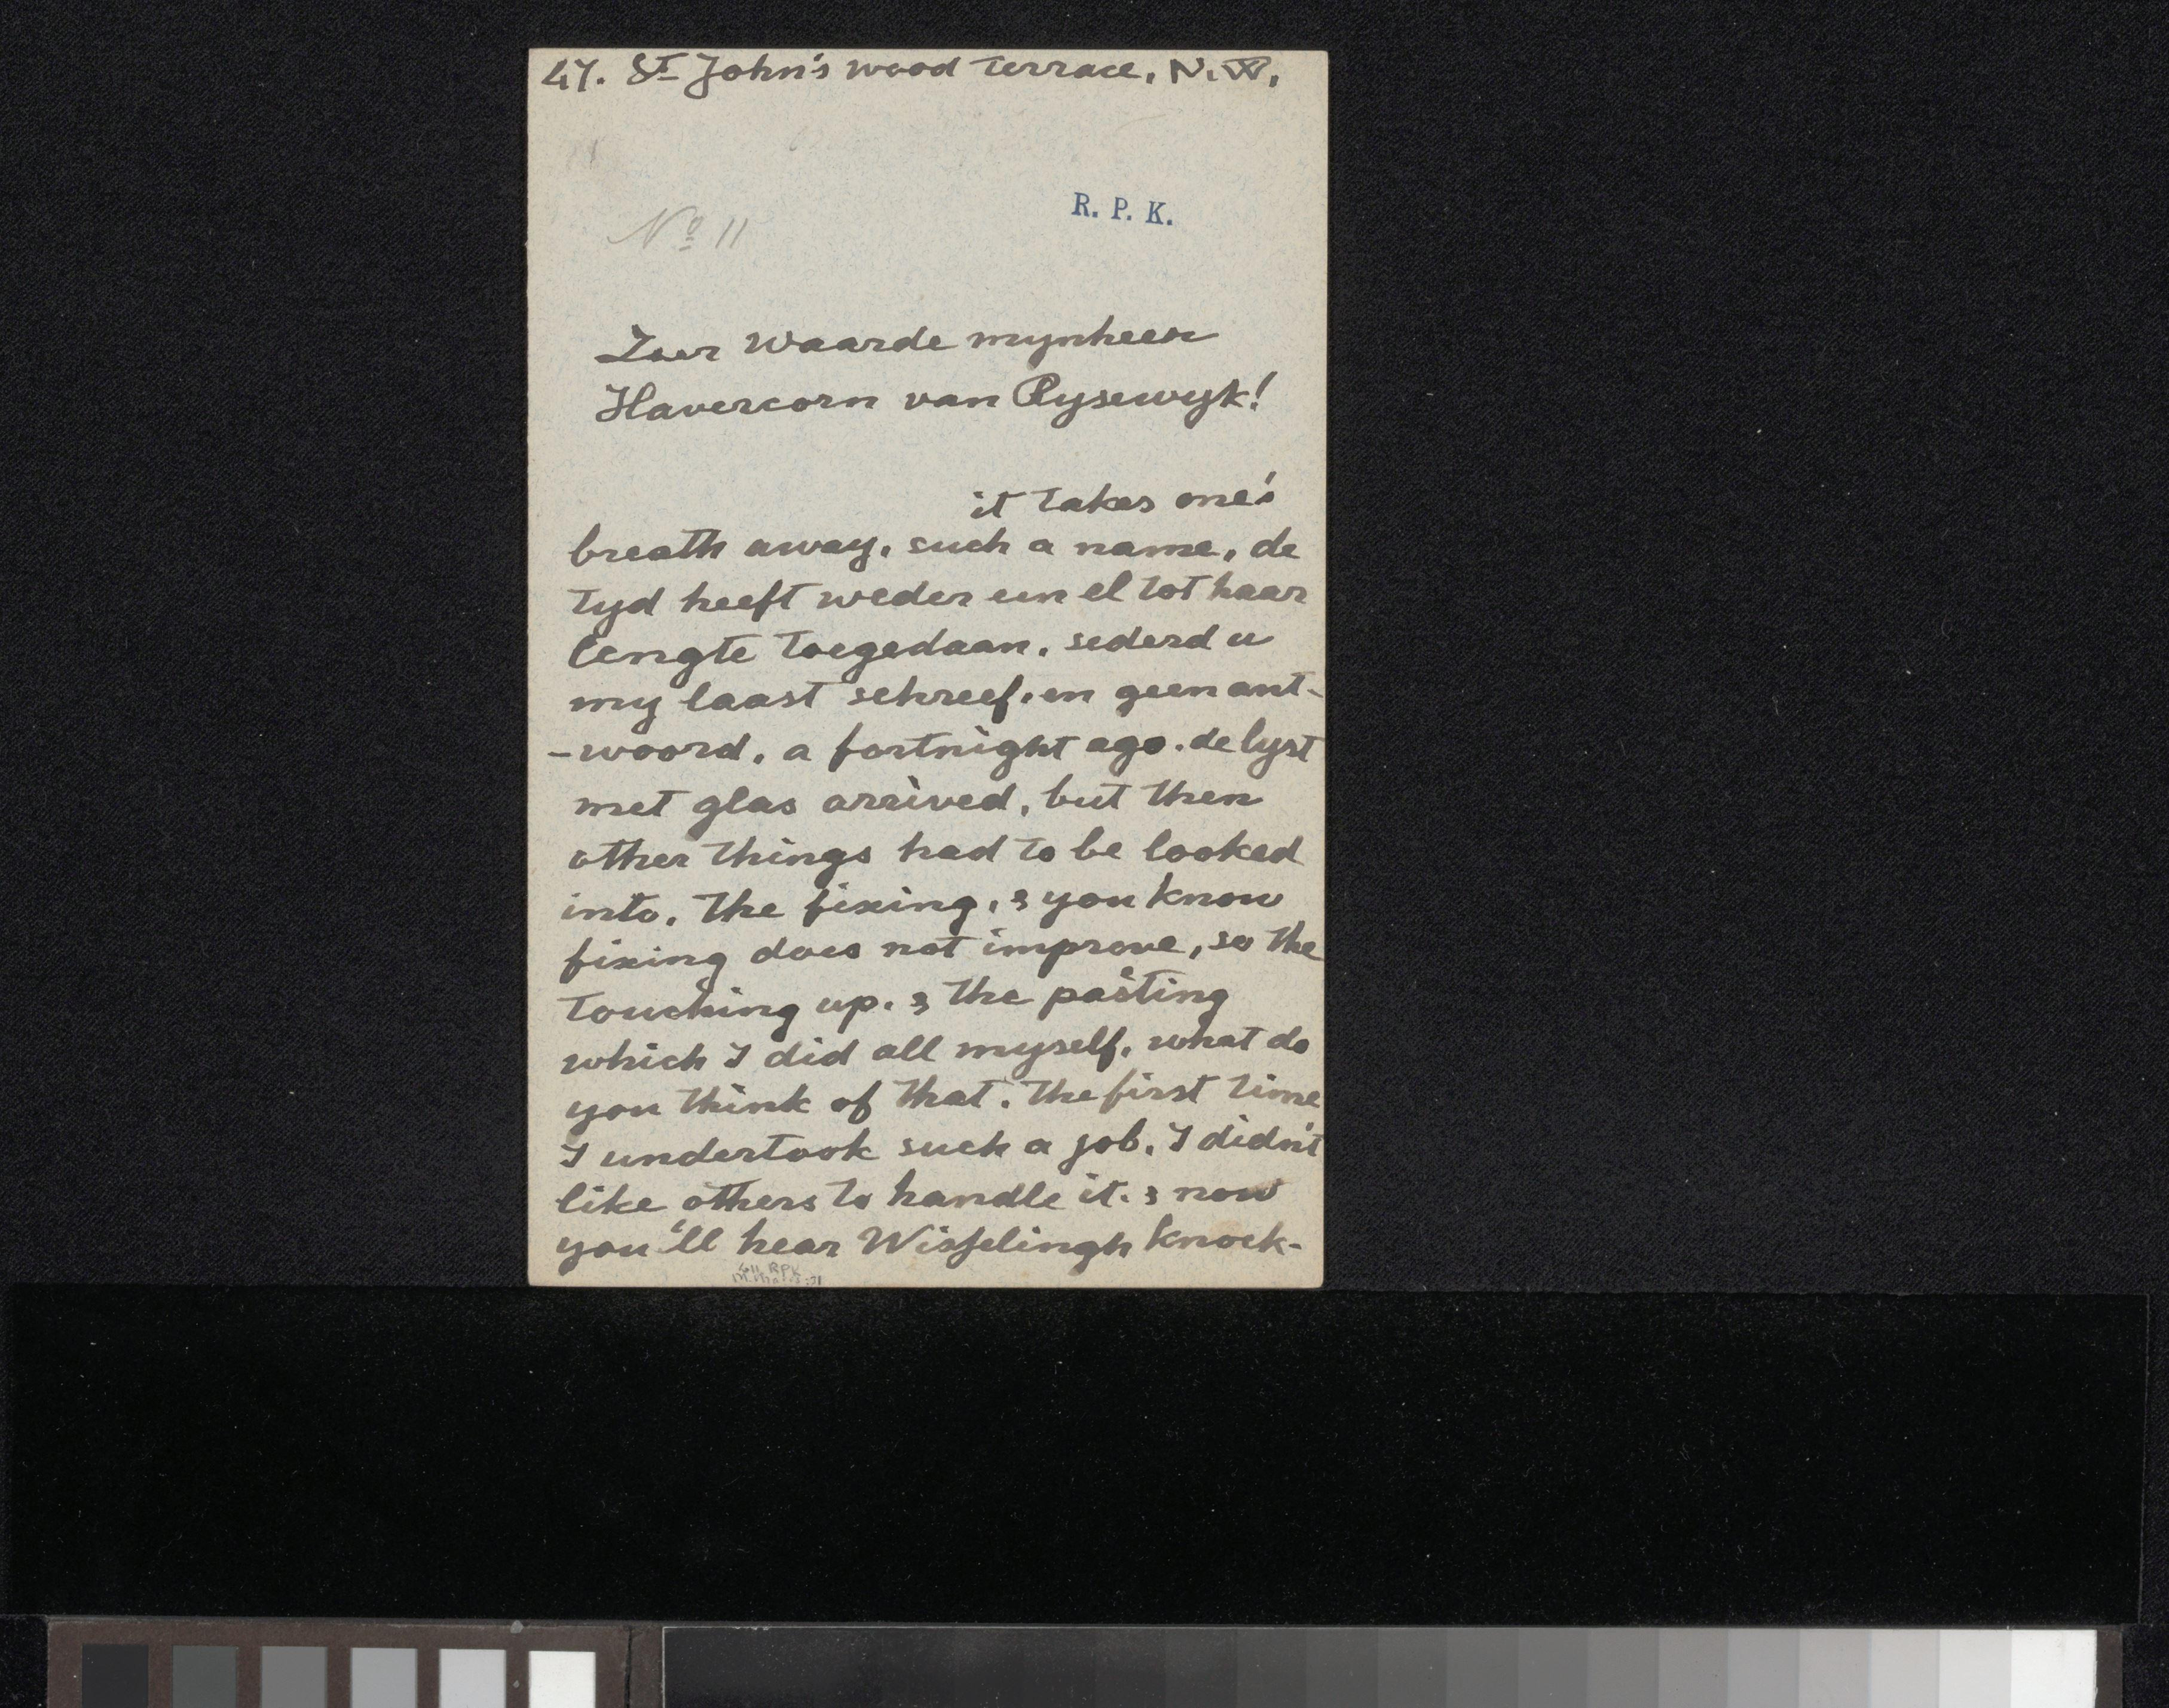 47. St John's wood terrace, N.W.
R. P. K.
No 11
Zeer waarde mynheer
Havercorn van Rysewyk!
it takes one's
breath away, such a name, de
tyd heeft weder een el tot haar
lengte toegedaan, sederd u
my laast schreef, en geen ant-
-woord, a fortnight ago. de lyst
met glas arrived, but then
other things had to be looked
into. The fixing, & you know
fixing does not improve, so the
touching up. & the pasting
which I did all myself, what do
you think of that. The first time
I undertook such a job. I didn't
like others to handle it. & now
you'll hear Wisselingh knock-